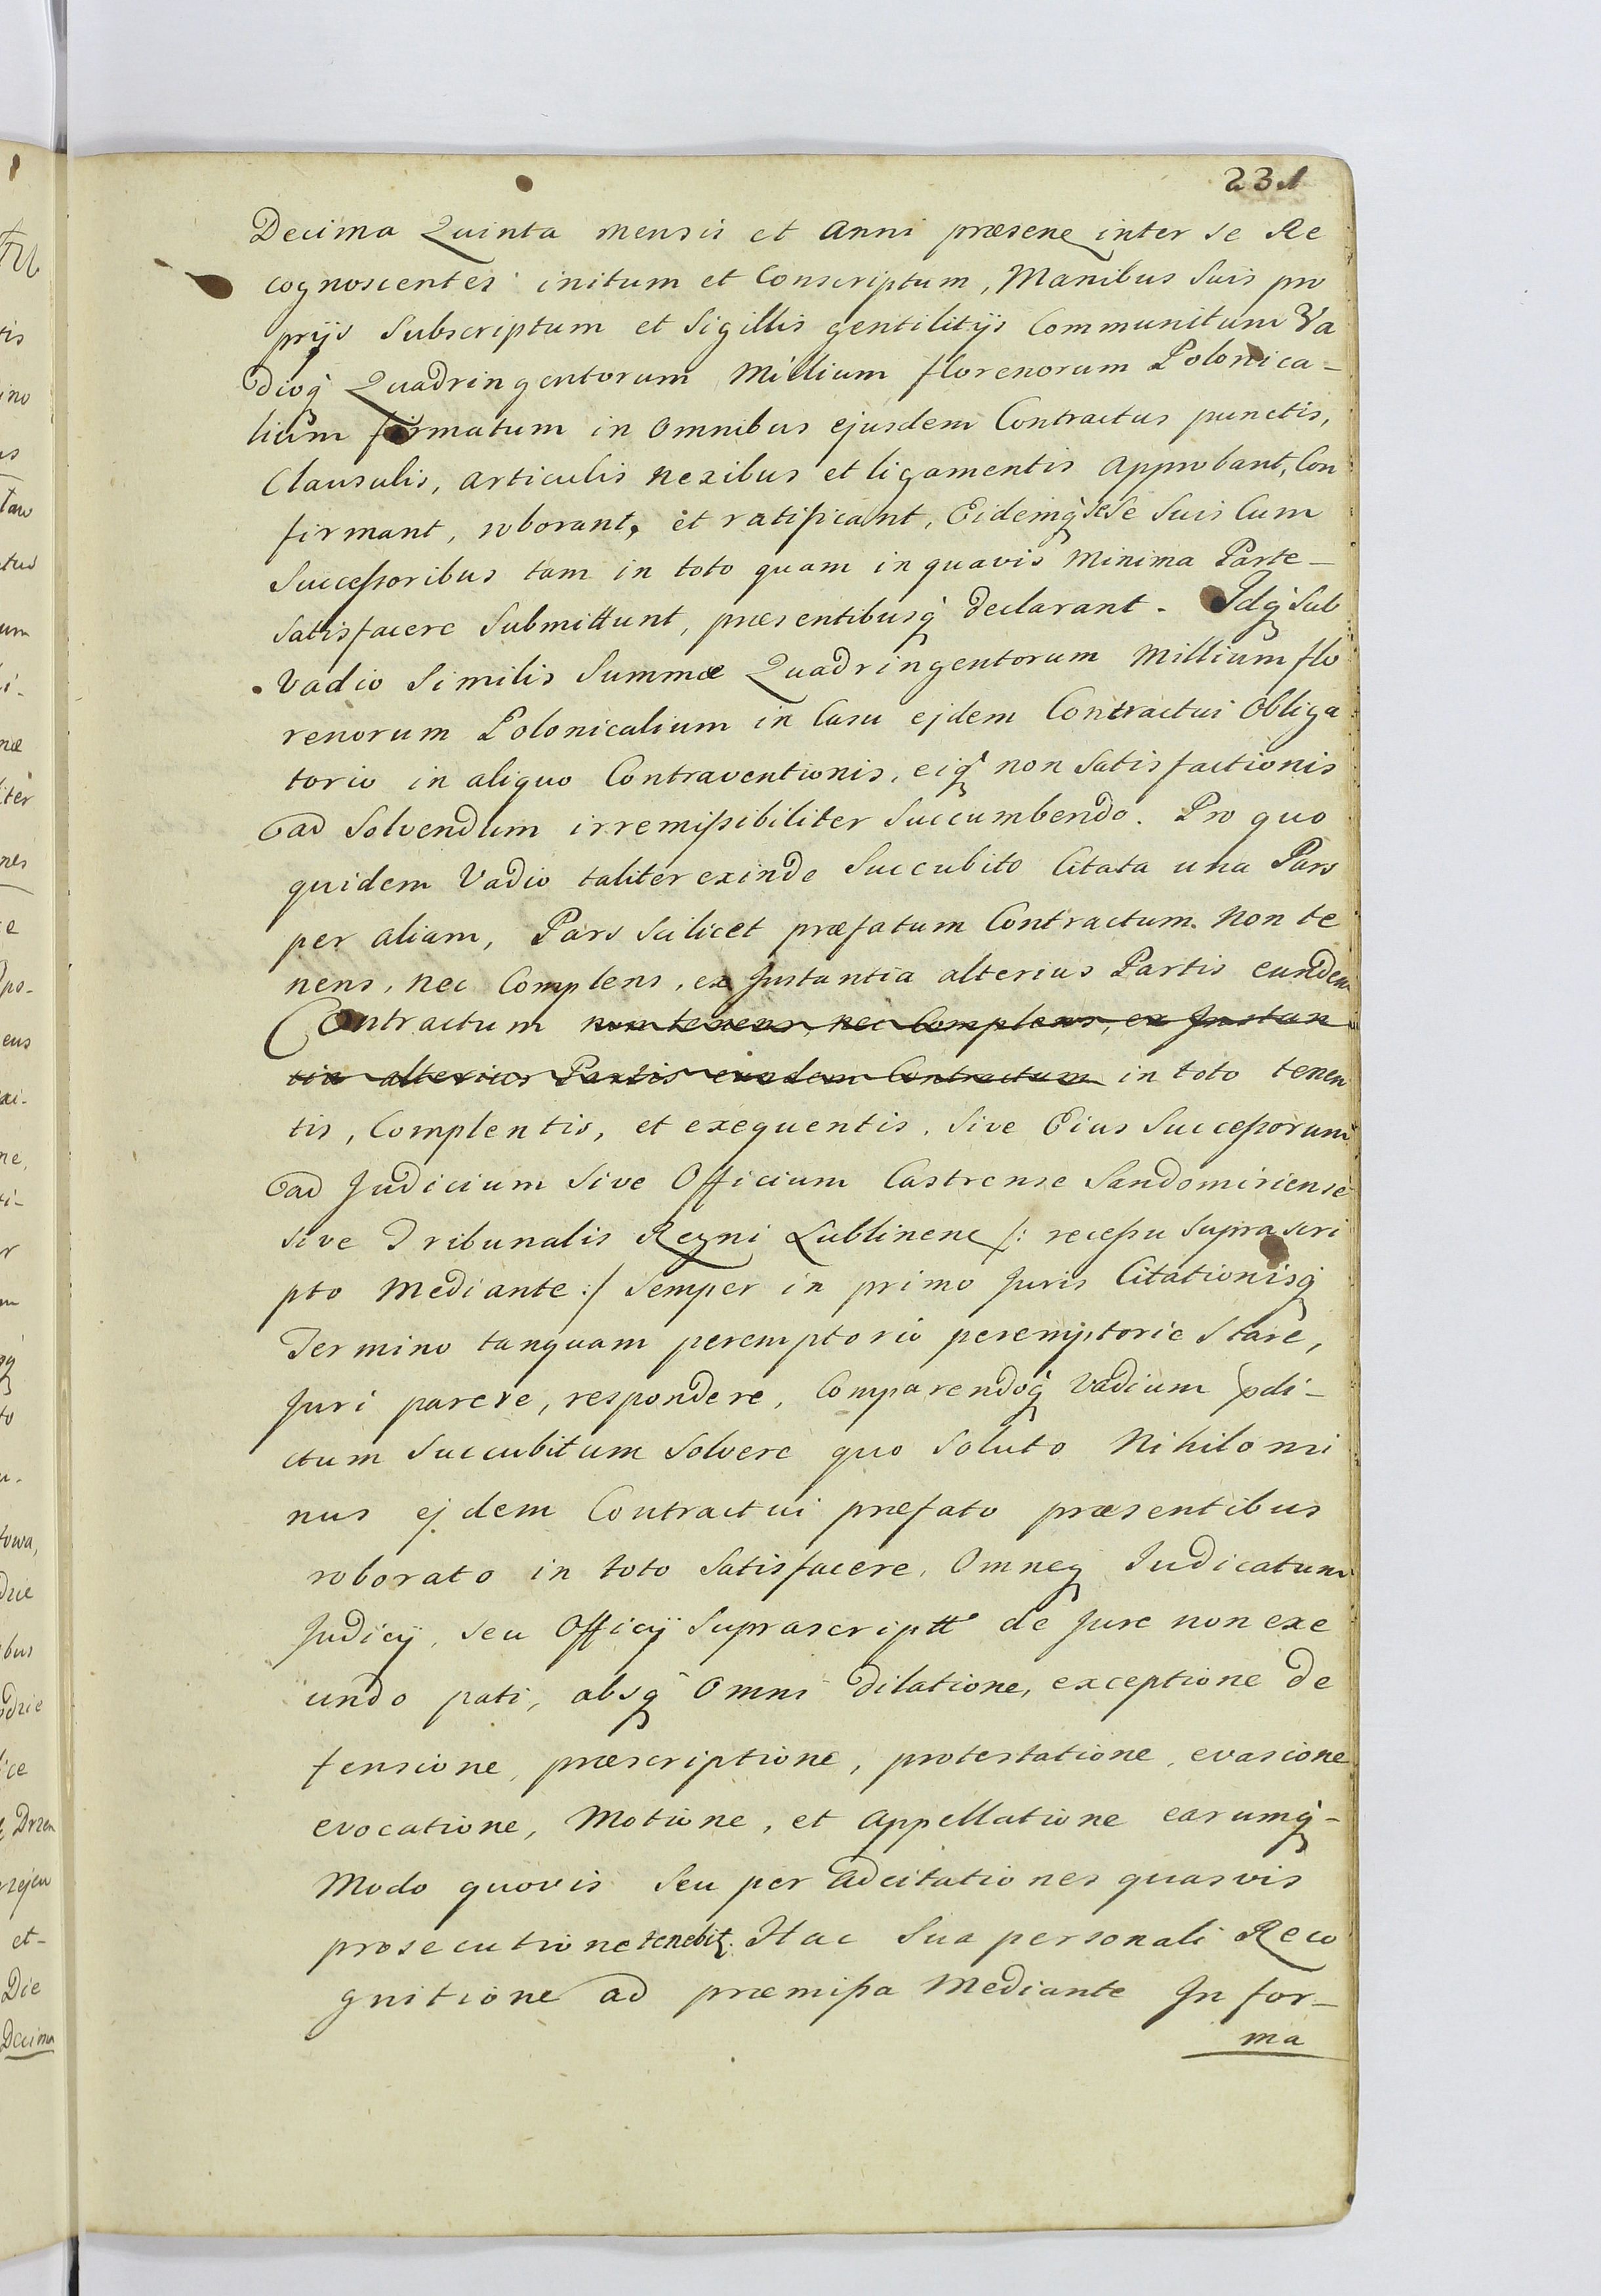 231
Decima Quinta mensis et Anni præsene inter se Re
cognoscentes initum et Conscriptum, Manibus Suis pro
prijs Subscriptum et Sigillis gentilitijs Communitum Va
dioq̀ Quadringentorum Millium florenorum Polonica-
lium firmatum in Omnibus ejusdem Contractus punctis,
Clausulis, articulis nexibus et ligamentis Approbant, Con
firmant, roborant, et ratificant, Eidemq̀ sese Suis Cum
Successoribus tam in toto quam in quavis Minima Parte-
Satisfacere Submittunt, præsentibusq̀ declarant. Idq̀ Sub
Vadio Similis Summæ Quadringentorum Millium flo
renorum Polonicalium in Casu ejdem Contractui Obliga
torio in aliquo Contraventionis, eiq̀ non Satisfactionis
ad Solvendum irremissibiliter Succumbendo. Pro quo
quidem Vadio taliter exinde Succubito Citata una Pars
per aliam, Pars Scilicet præfatum Contractum non te
nens, nec Complens, ex Instantia alterius Partis eundem
Contractum non tenens, nec Complens, ex Instan
tia alterius Partis eundem Contractum in toto tenen
tis, Complentis, et exequentis, Sive Eius Successorum
ad Judicium Sive Officium Castrense Sandomiriense
sive Tribunalis Regni Lublinene /: recessu suprascri
pto Mediante :/ Semper in primo Juris Citationisq̀
Termino tanquam peremptorio peremptorie Stare,
Juri parere, respondere, Comparendoq̀ Vadium pdi-
ctum Succubitum Solvere quo Soluto Nihilomi
nus ejdem Contractui præfato præsentibus
roborato in toto Satisfacere, Omneq Judicatum
Judicij, seu Officij Suprascriptt de Jure non exe
undo pati, absq̀ Omni dilatione, exceptione De
fensione, præscriptione, protestatione, evasione
evocatione, Motione, et Appellatione earumq̀-
Modo quovis Seu per Adcitationes quasvis
prosecutione tenebit. Hac Sua personali Reco
gnitione ad præmissa Mediante In for-
ma